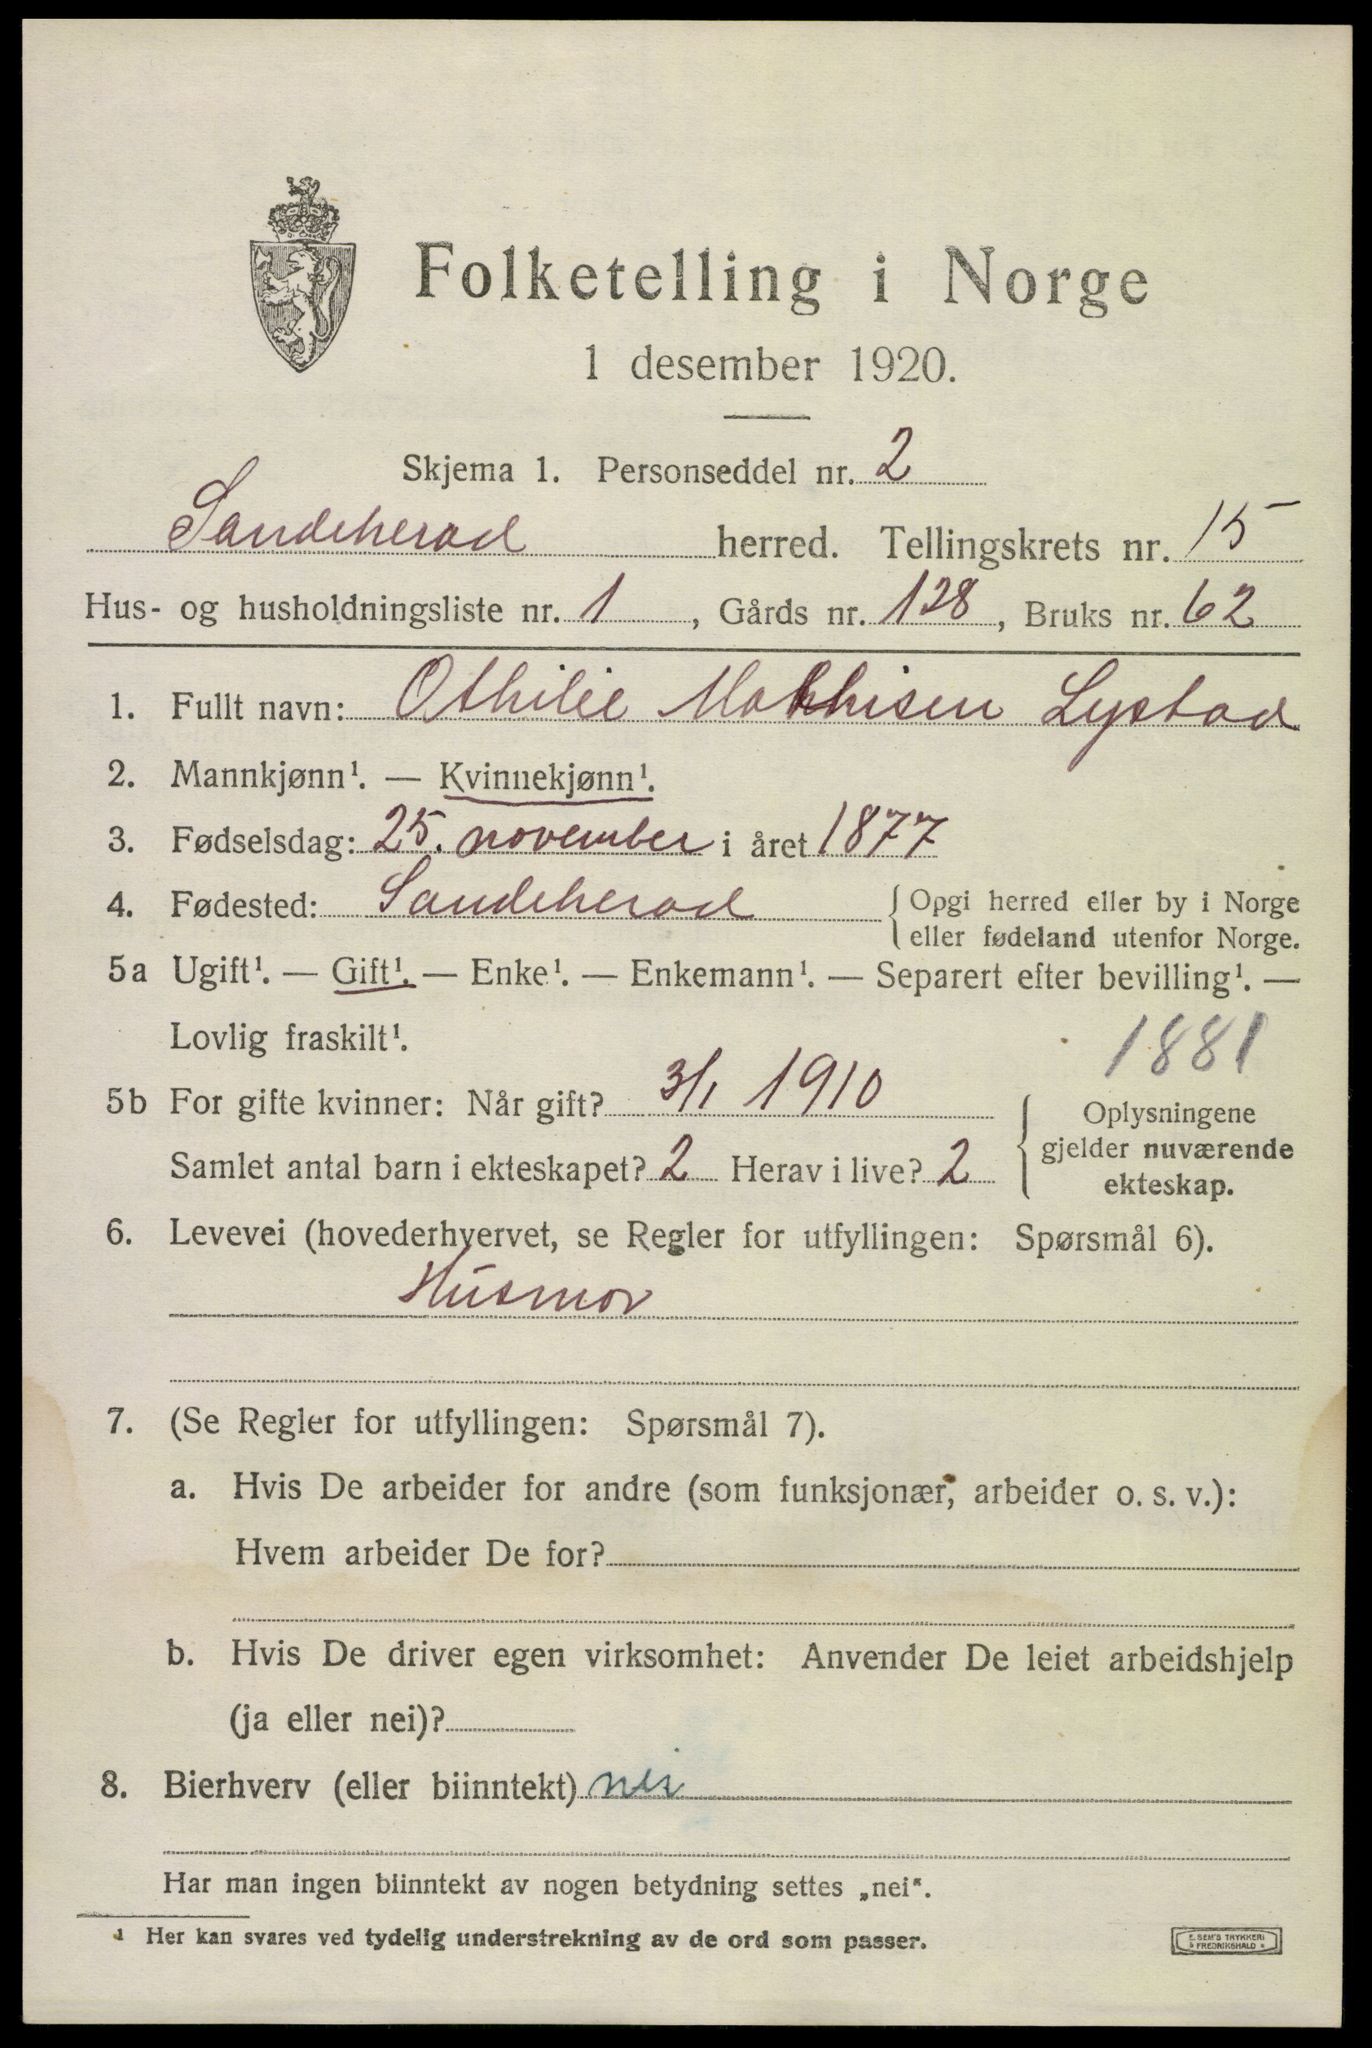 Folketelling i Norge
1 desember 1920.
Skjema 1. Personseddel nr. 2
Sandeherad herred. Tellingskrets nr. 15
Hus- og husholdningsliste nr. 1, Gårds nr. 128, Bruks nr. 62
1. Fullt navn: Othilie Mathisen Lystad
2. Mannkjønn¹. — Kvinnekjønn¹.
3. Fødselsdag: 25. november i året 1877
4. Fødested: Sandeherad { Opgi herred eller by i Norge
eller fødeland utenfor Norge.
5a Ugift¹. — Gift¹. — Enke¹. — Enkemann¹. — Separert efter bevilling¹. —
Lovlig fraskilt¹.
1881
5b For gifte kvinner: Når gift? 3/1 1910
Samlet antal barn i ekteskapet? 2 Herav i live? 2
{ Oplysningene
gjelder nuværende
ekteskap.
6. Levevei (hovederhvervet, se Regler for utfyllingen: Spørsmål 6).
Husmor
7. (Se Regler for utfyllingen: Spørsmål 7).
a. Hvis De arbeider for andre (som funksjonær, arbeider o. s. v.):
Hvem arbeider De for?
b. Hvis De driver egen virksomhet: Anvender De leiet arbeidshjelp
(ja eller nei)?
8. Bierhverv (eller biinntekt) nei
Har man ingen biinntekt av nogen betydning settes „nei".
¹ Her kan svares ved tydelig understrekning av de ord som passer.
E. SEM'S TRYKKERI
FREDRIKSHALD